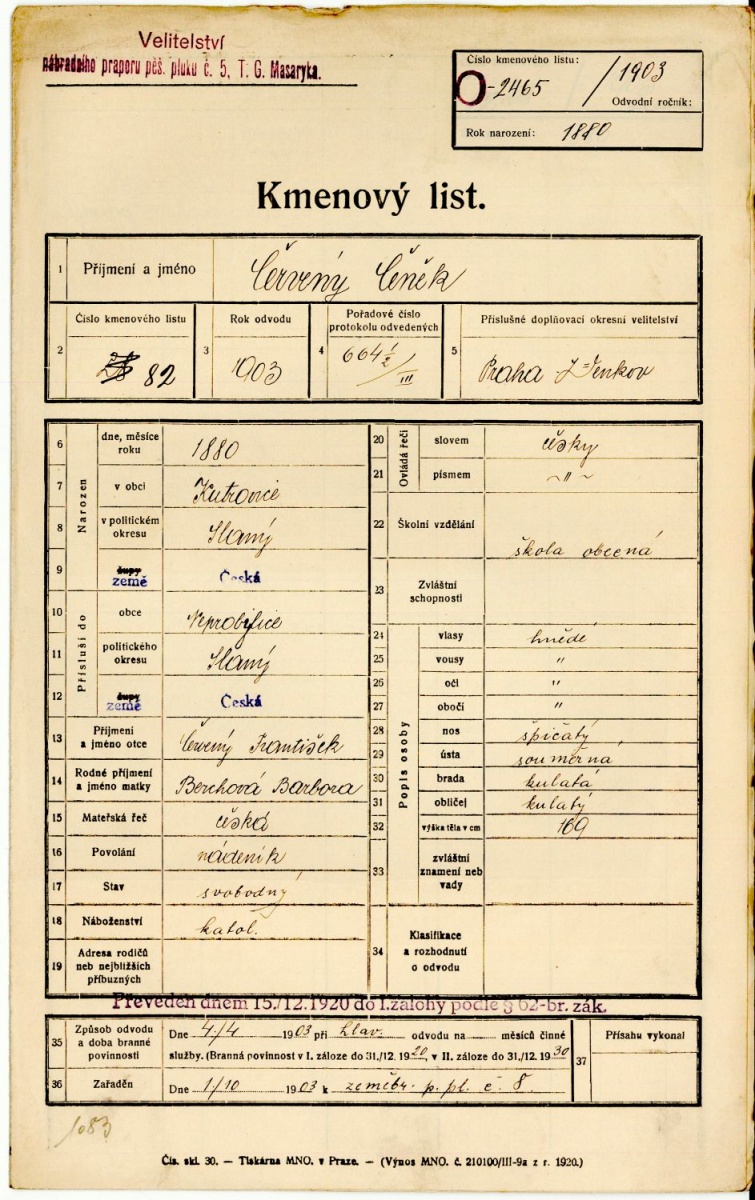 Velitelství
náhradního praporu pěš. pluku č. 5, T. G. Masaryka.
Číslo kmenového listu:
O-2465 / 1903
Odvodní ročník:
Rok narození: 1880
Kmenový list.
1 Příjmení a jméno Červený Čeněk
2 Číslo kmenového listu 82
3 Rok odvodu 1903
4 Pořadové číslo protokolu odvedených 664 1/2 / III
5 Příslušné doplňovací okresní velitelství Praha
Narozen
6 dne, měsíce roku 1880
7 v obci Kutrovice
8 v politickém okresu Slaný
9 župy země Česká
Přísluší do
10 obce Neprobylice
11 politického okresu Slaný
12 župy země Česká
13 Příjmení a jméno otce Červený František
14 Rodné příjmení a jméno matky Berchová Barbora
15 Mateřská řeč česká
16 Povolání nádeník
17 Stav svobodný
18 Náboženství katol.
19 Adresa rodičů neb nejbližších příbuzných
Ovládá řeči
20 slovem česky
21 písmem ~ " ~
22 Školní vzdělání škola obecná
23 Zvláštní schopnosti
Popis osoby
24 vlasy hnědé
25 vousy "
26 oči "
27 obočí "
28 nos špičatý
29 ústa souměrná
30 brada kulatá
31 obličej kulatý
32 výška těla v cm 169
33 zvláštní znamení neb vady
34 Klasifikace a rozhodnutí o odvodu
Převeden dnem 15./12.1920 do I.zálohy podle § 62-br. zák.
35 Způsob odvodu a doba branné povinnosti
Dne 4/4 1903 při hlav. odvodu na měsíců činné
služby. (Branná povinnost v I. záloze do 31./12. 1920, v II. záloze do 31./12. 1930
36 Zařaděn Dne 1/10 1903 k zeměbr. p. pl. č. 8.
37 Přísahu vykonal
1083
Čís. skl. 30. — Tiskárna MNO. v Praze. — (Výnos MNO. č. 210100/III-9a z r. 1920.)